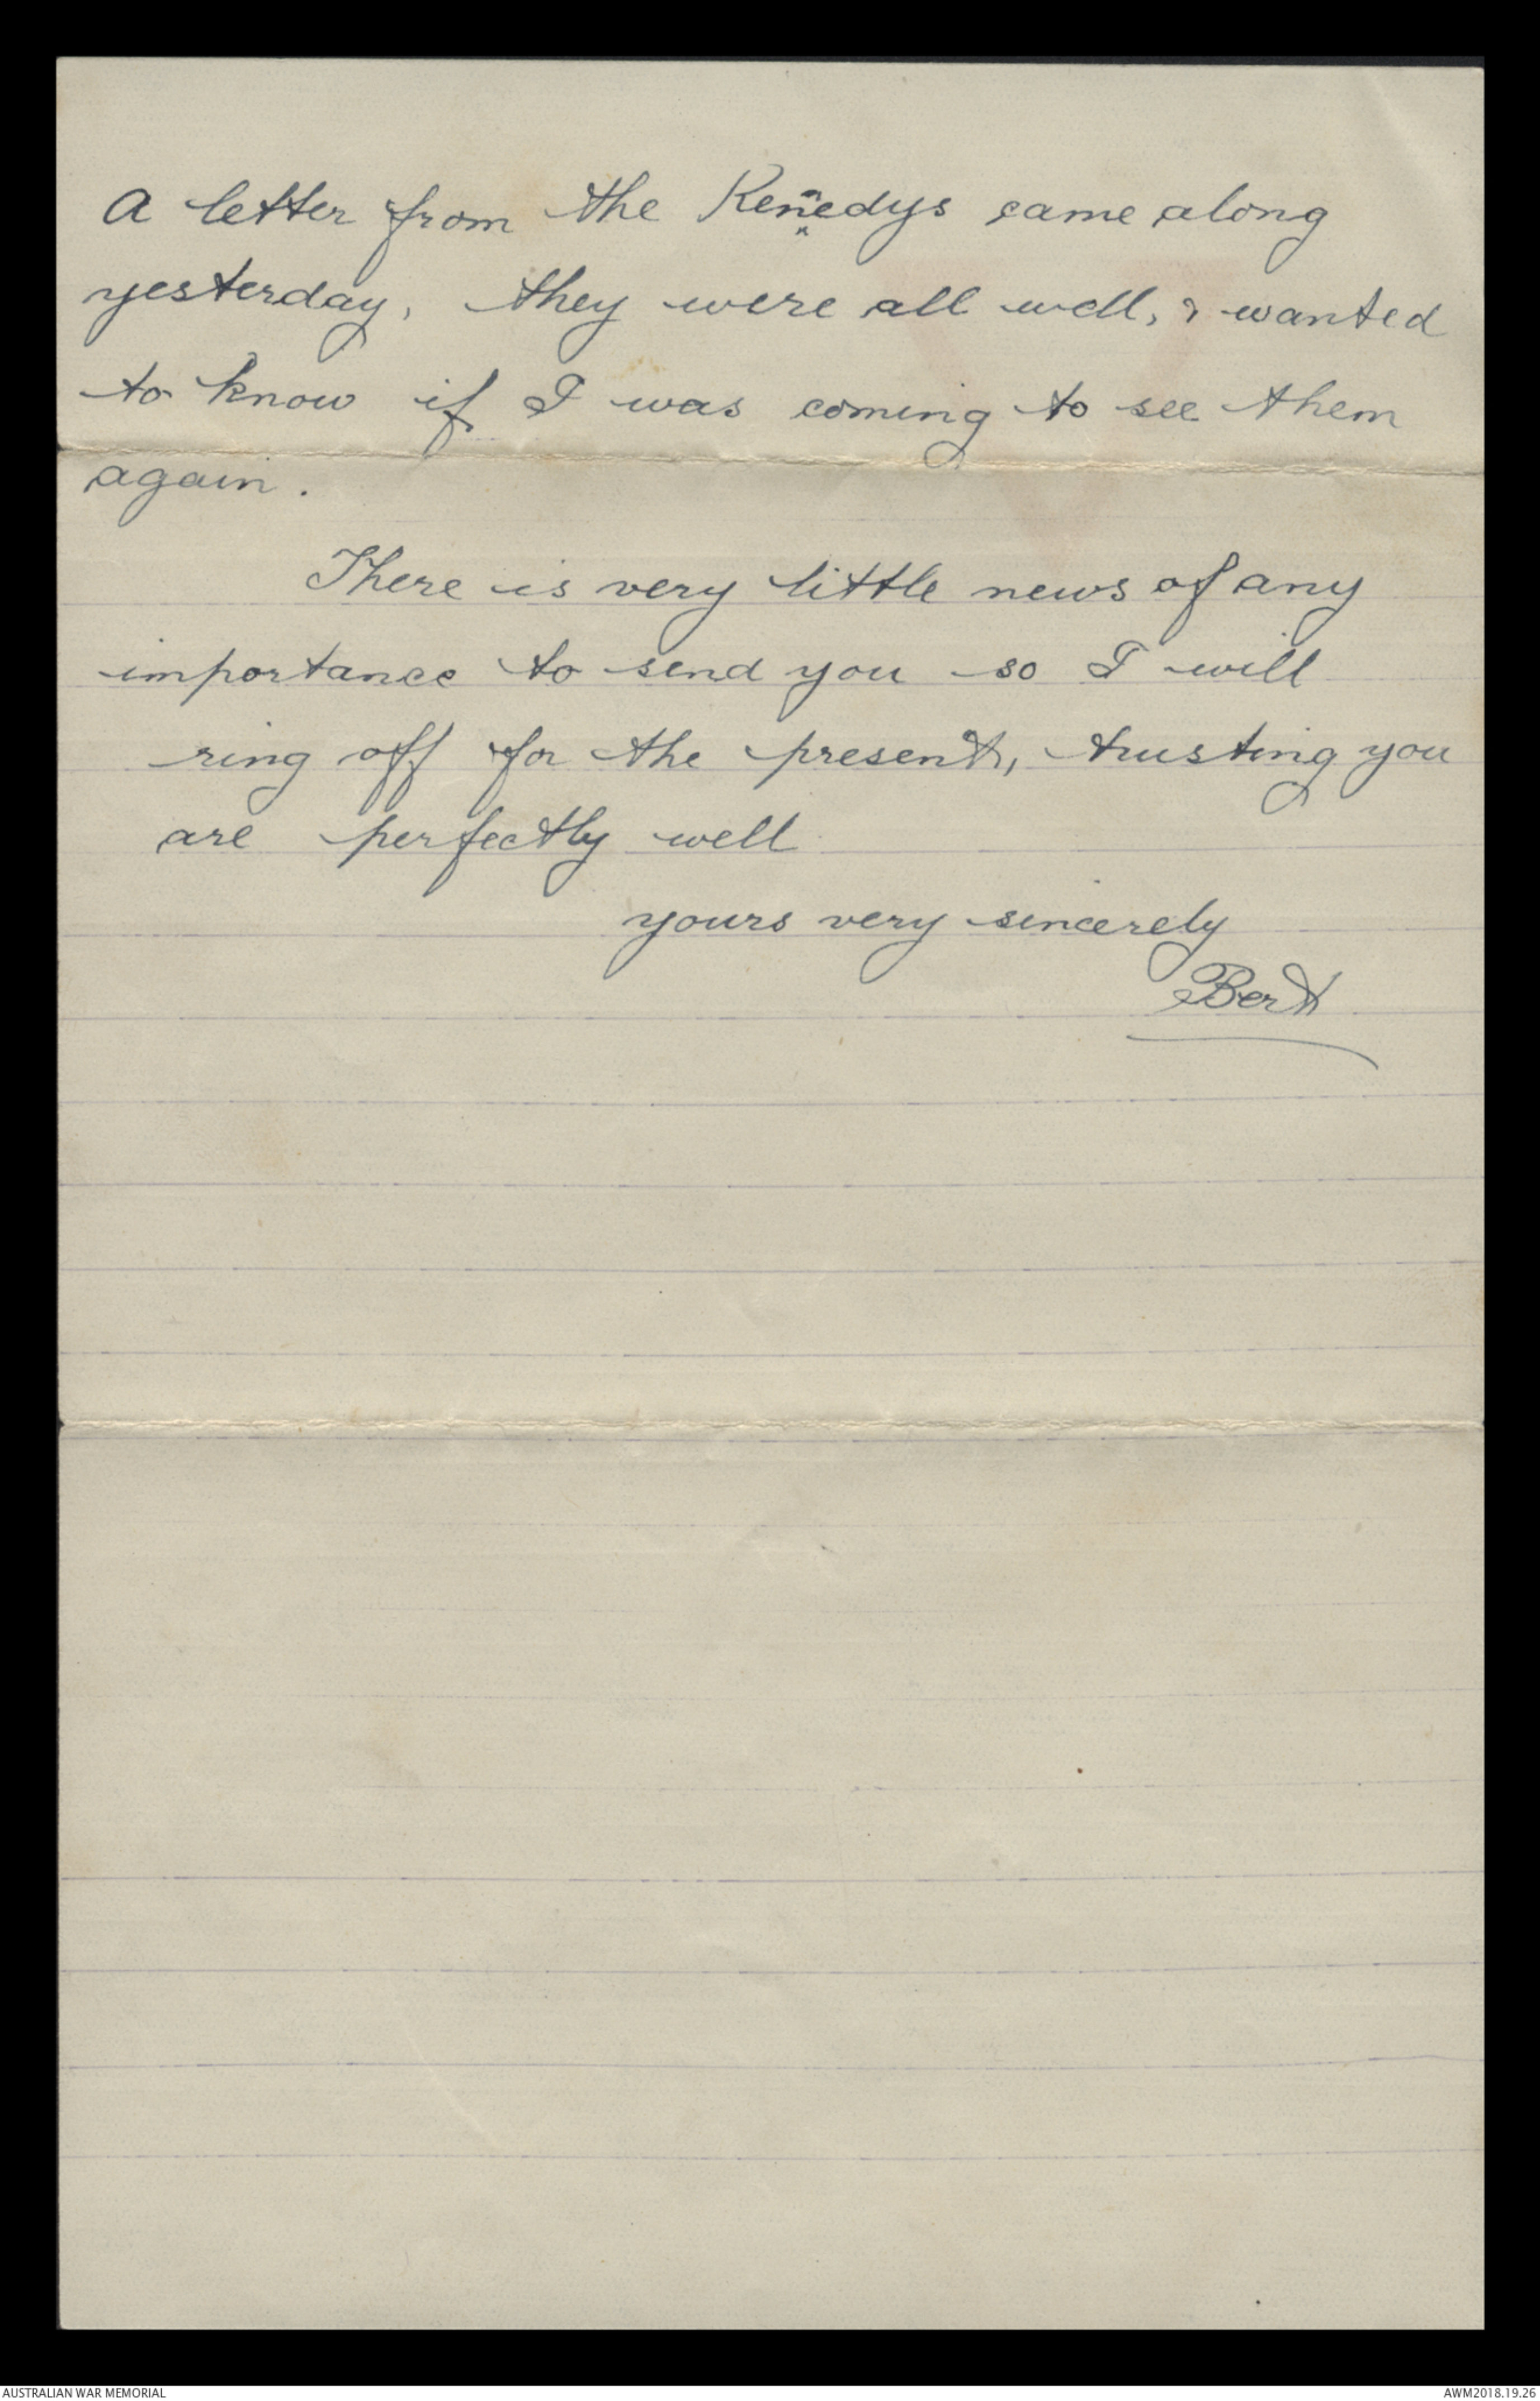 A letter from the Kennedys came along
yesterday, they were all well, & wanted
to know if I was coming to see them
again.
There is very little news of any
importance to send you so I will
ring off for the present, trusting you
are perfectly well
yours very sincerely
Bert
AUSTRALIAN WAR MEMORIAL
AWM2018.19.26